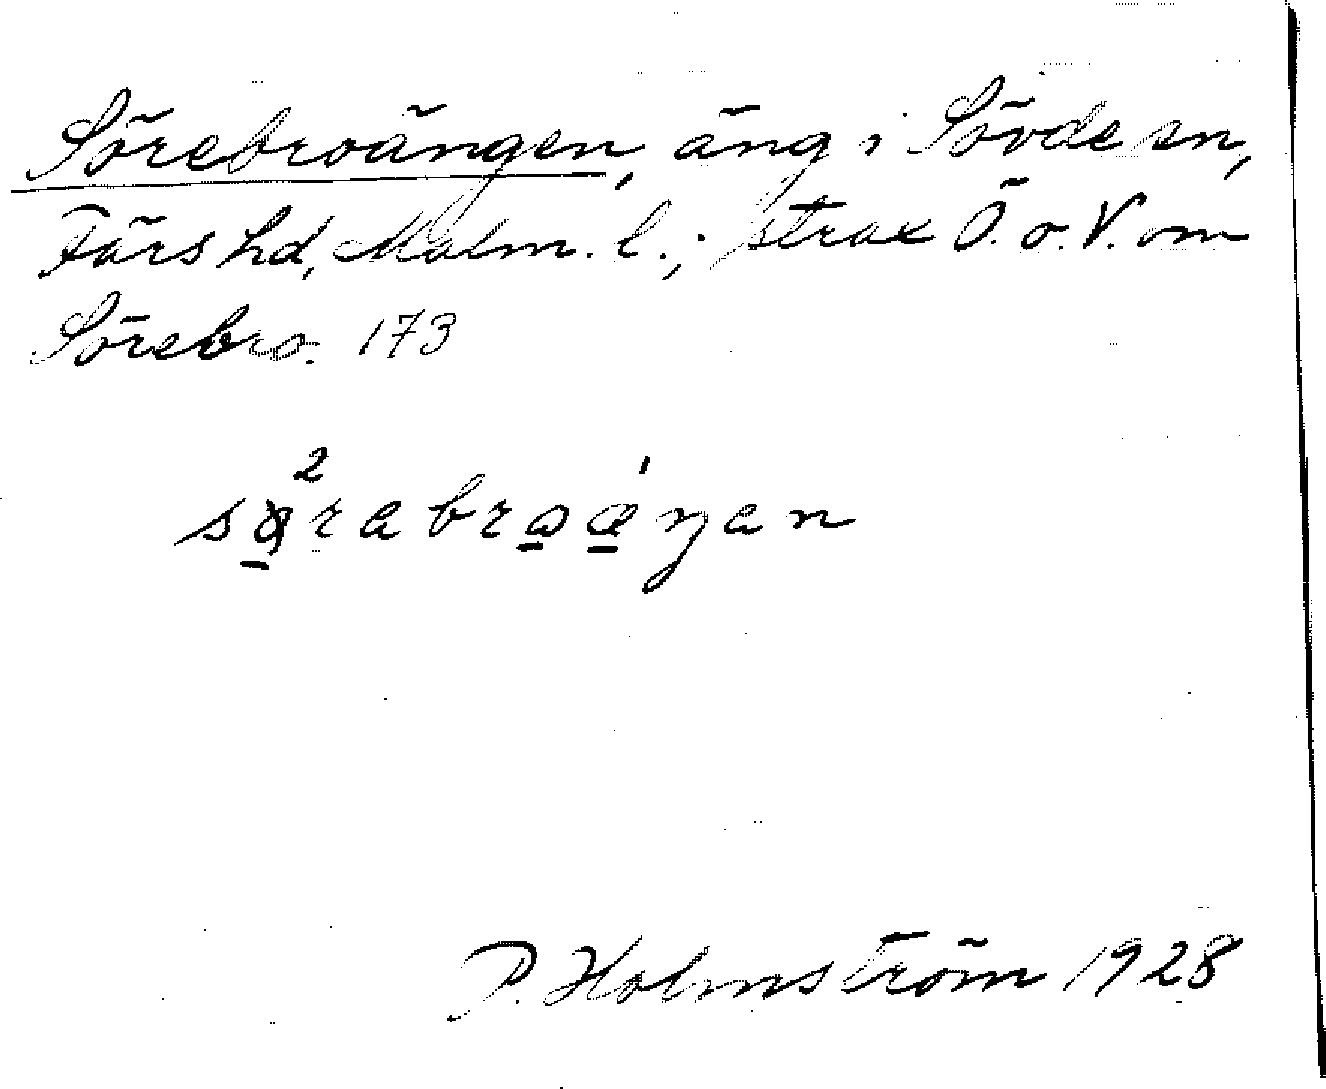 Sörebroängen, äng i Sövde sn,
Färs hd, Malm. l.; strax Ö. o. V. om
Sörebro. 173
P. Holmström 1928